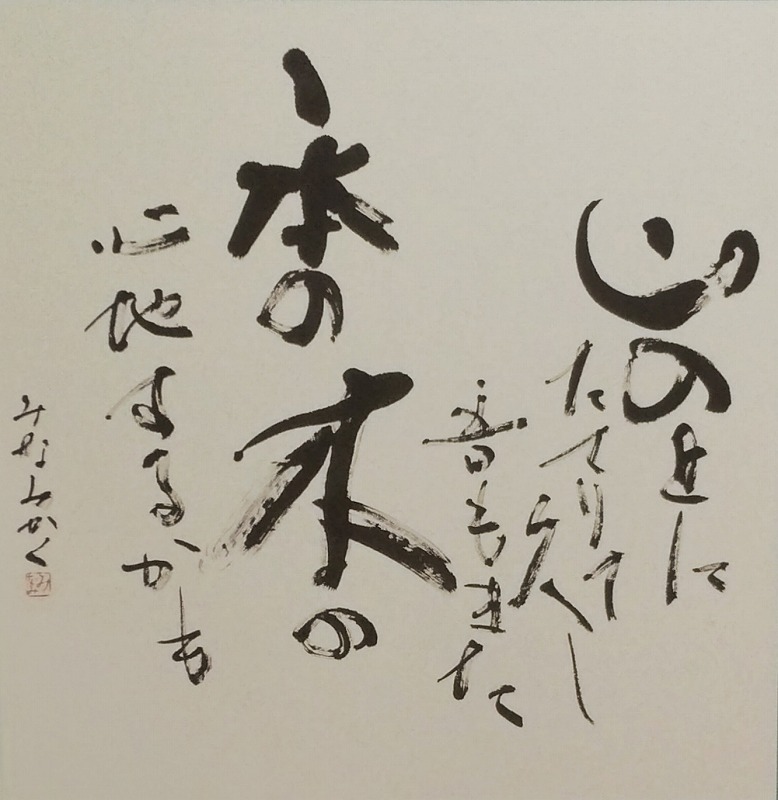 山の上に
たてりて久し
吾もまた
一本の木の
心地するかも
みなみかく